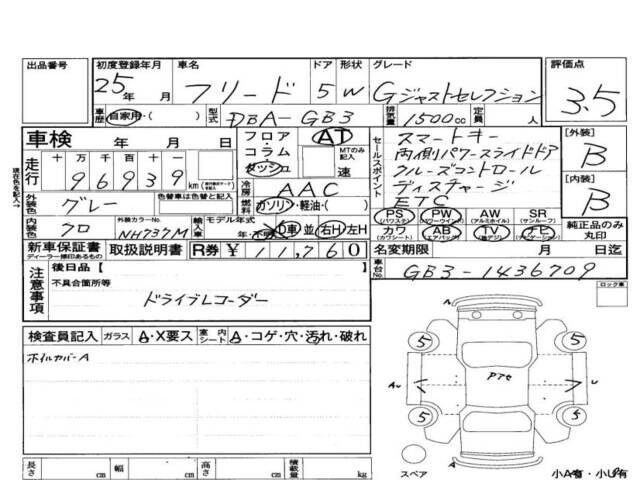 出品番号 初度登録年月 車名 ドア 形状 グレード 評価点
25年 月 フリード 5 W Gジャストセレクション 3.5
車歴 自家用・( ) 型式 DBA-GB3 排気量 1500cc 定員 人
車検 年 月 日 フロア・コラム・ダッシュ AT MTのみ記入 速
走行 十 万 千 百 十 一
9 6 9 3 9 km
セールスポイント
スマートキー
両側パワースライドドア
クルーズコントロール
ディスチャージ
ETC
[外装] B
[内装] B
純正品のみ丸印
冷房 AAC
燃料 ガソリン・軽油・( )
外装色 グレー 色替車は色替と記入
内装色 クロ 外装カラーNo. NH737M
輸入車 モデル年式 年・不明 D車 並 右H 左H
PS (パワステ) PW (パワーウインド) AW (アルミホイル) SR (サンルーフ)
カワ (カワシート) AB (エアバッグ) TV (除アナ) ナビ (ナビゲーション)
新車保証書 ディーラー捺印あるもの 取扱説明書 R券 ¥ 11,760
名変期限 月 日迄
車台No. GB3-1436709
ロック車
注意事項
後日品【 】
不具合箇所等
ドライブレコーダー
検査員記入 ガラス A・X要ス 室内シート A・コゲ・穴・汚れ・破れ
ホイルカバーA
A
5 5
AU Pアセ U
5 5
スペア A
小A有・小U有
長さ cm 幅 cm 高さ cm 積載量 kg
現在色を記入→